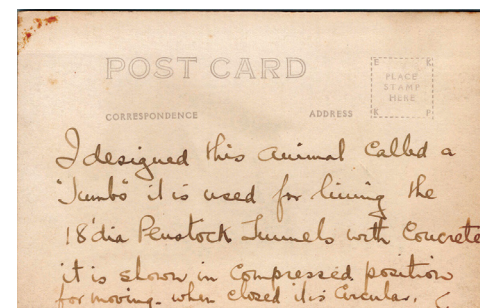 POST CARD
PLACE
STAMP
HERE
CORRESPONDENCE
ADDRESS
I designed this animal called a
"Jumbo" it is used for lining the
18'dia Penstock Tunnels with Concrete
it is shown in Compressed position
for moving. when closed it is Circular.